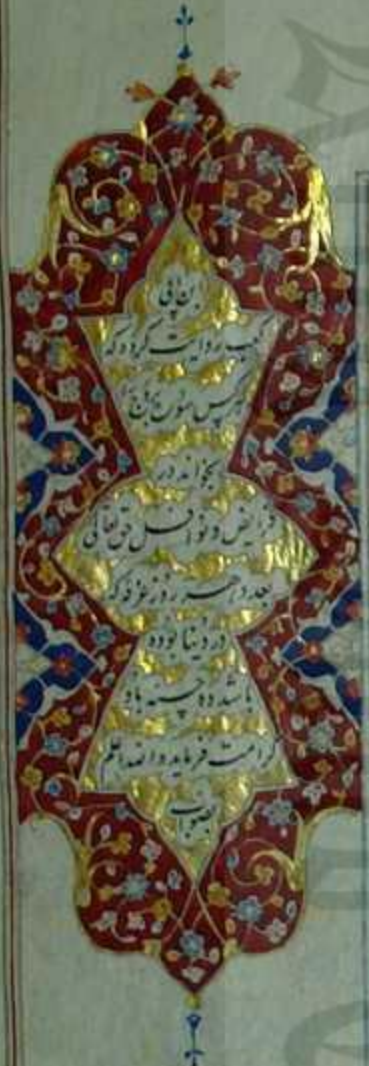 ابن ابی
کعب روایت کرد که
هر کس سورة حج را
بخواند در
فرایض و نوافل حق تعالی
بعدد هر روز عرفه که
در دنیا بوده
باشد ده حسنه باو
کرامت فرماید والله اعلم
بصواب